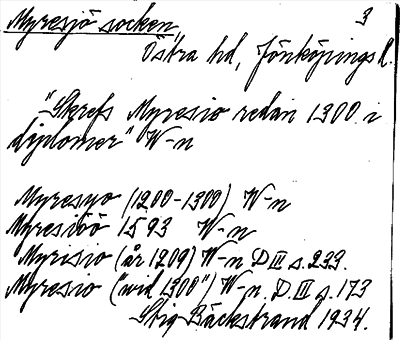 Myresjö socken, 3
Östra hd, Jönköpings l.
"Skrefs Myresio redan 1300 i
diplomer" W-n
Myresyo (1200-1300) W-n
Myresiöö 1593 W-n
Myrisio (år 1209) W-n D III s. 233.
Myresio ("wid 1300") W-n. D. III s. 173
Stig Bäckstrand 1934.